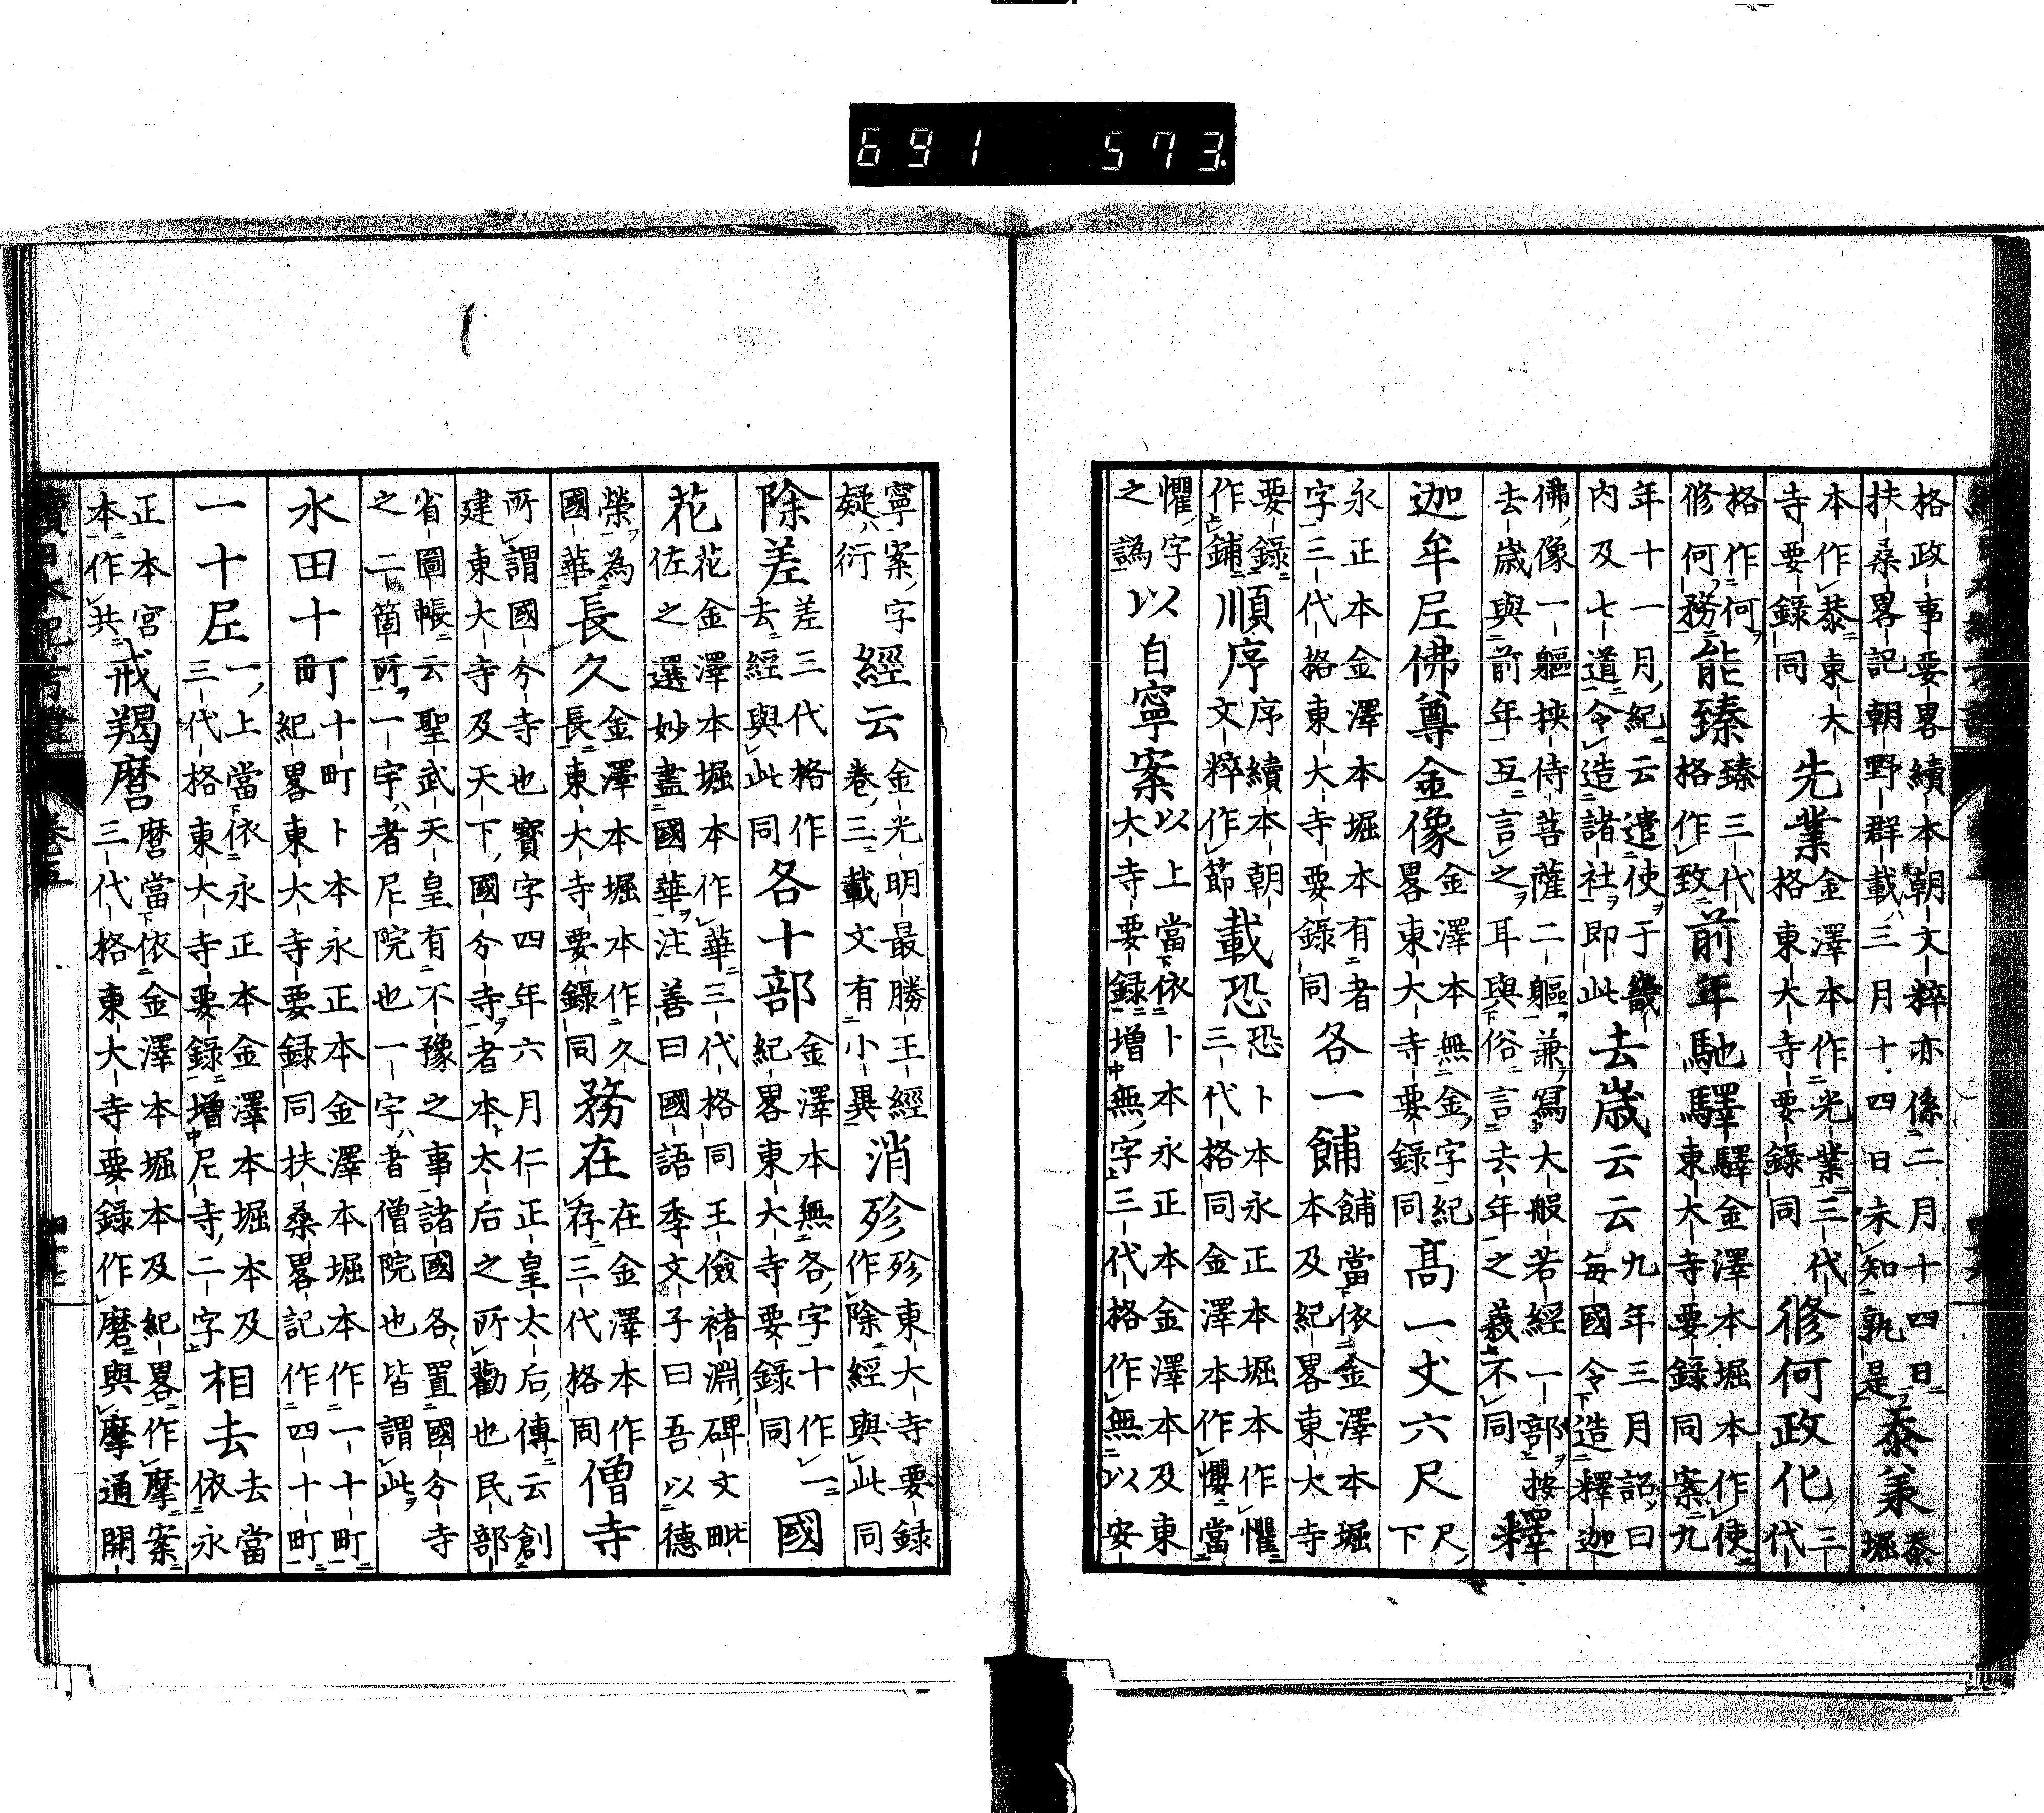 691 573
格政事要畧續本朝文粹亦係二月十四日
扶桑畧記朝野群載ハ三月十四日未知孰是
忝承
忝
堀
本作恭東大
寺要錄同
先業
金澤本作光業三代
格東大寺要錄同
修何政化
三
代
格作何
修何務
能臻
臻三代
格作致
前年馳驛
驛金澤本堀本作使
東大寺要錄同案九
年十一月紀云遣使于畿
内及七道令造諸社即此
去歲云云
九年三月詔曰
每國令造釋迦
佛像一軀挾侍菩薩二軀兼寫大般若經一部按
去歲與前年互言之耳與俗言去年之義不同
釋
迦牟尼佛尊金像
金澤本無金字紀
畧東大寺要錄同
高一丈六尺
尺
下
永正本金澤本堀本有者
字三代格東大寺要錄同
各一餔
餔當依金澤本堀
本及紀畧東大寺
要錄
作鋪
順序
序續本朝
文粹作節
載恐
恐卜本永正本堀本作懼
三代格同金澤本作戄當
懼字
之譌
以自寧案
以上當依卜本永正本金澤本及東
大寺要錄增無字三代格作無以安
寧案字
疑ハ衍
經云
金光明最勝王經
卷三載文有小異
消殄
殄東大寺要録
作除經與此同
除差
差三代格作
去經與此同
各十部
金澤本無各字十作一
紀畧東大寺要錄同
國
花
花金澤本堀本作華三代格同王儉褚淵碑文毗
佐之選妙盡國華注善曰國語季文子曰吾以德
榮為
國華
長久
金澤本堀本作久
長東大寺要錄同
務在
在金澤本作
存三代格同
僧寺
所謂國分寺也寶字四年六月仁正皇太后傳云創
建東大寺及天下國分寺者本太后之所勸也民部
省圖帳云聖武天皇有不豫之事諸國各置國分寺
之二箇所一宇ハ者尼院也一宇ハ者僧院也皆謂此
水田十町
十町卜本永正本金澤本堀本作一十町
紀畧東大寺要録同扶桑畧記作四十町
一十尼
一上當依永正本金澤本堀本及
三代格東大寺要錄增尼寺二字
相去
去當
依永
正本宮
本作共
戒羯磨
磨當依金澤本堀本及紀畧作摩案
三代格東大寺要錄作磨與摩通開
續日本紀考證
卷五